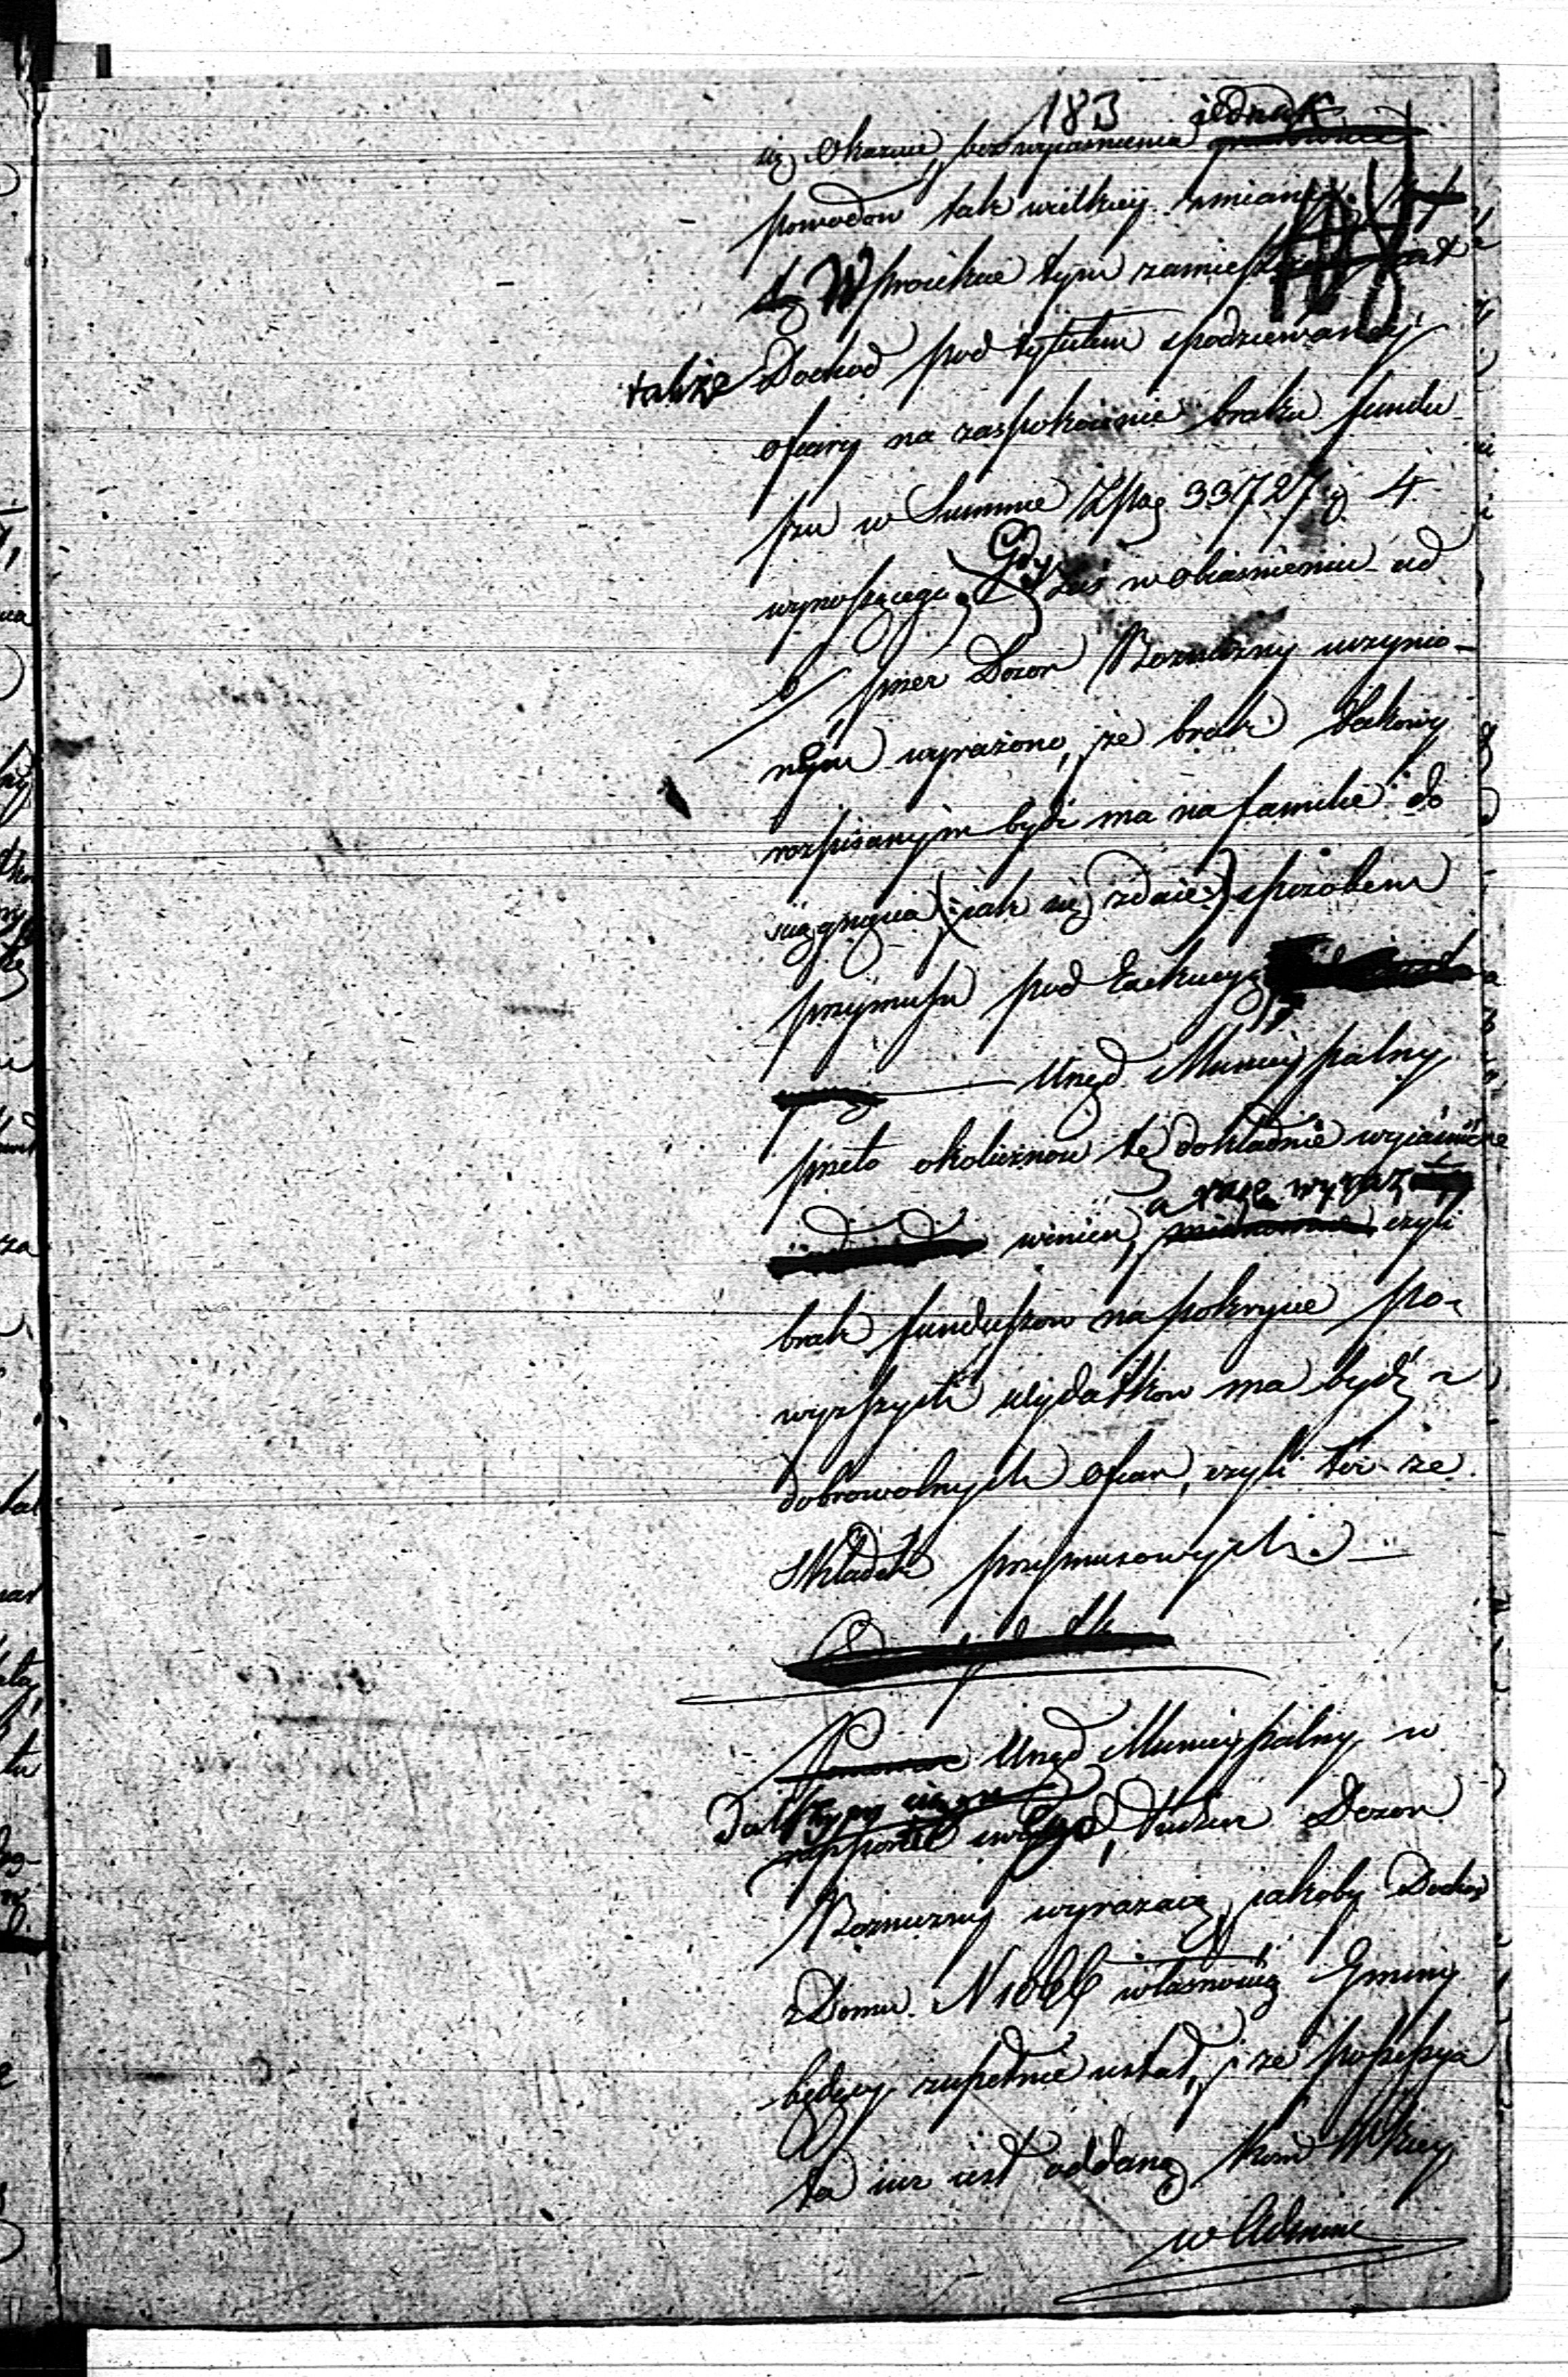 183 jednak
się okazuie, bez wyiasnienia
powodow tak wielkiey zmiany.
W proiekcie tym zamieszcz
także Dochod pod tytułem spodziewaney
ofiary na zaspokoienie braku fundu
szu w Summie Złpag 33727 g 4
wynoszącego. Gdy zaś w obiasnieniu ad
6 przez Dozor Bozniczny uczynio-
nym wyrażono, że brak takowy
rozpisanym bydź ma na familie do
sciągnęcia (: iak się zdaie :) sposobem
przymusu pod Exekucyą
Urząd Municypalny
przeto okoliczność tę dokładnie wyiaśnić
winien, a czyli
brak funduszow na pokrycie po-
wyższych wydatkow ma bydź z
dobrowolnych ofiar, czyli też ze
składek przymusowych. —
Urząd Municypalny w
Dalszym ciągu
rapportu tudzież Dozor
Bozniczny wyrażaią, iakoby Dochod
z Domu N 1066 własnością Gminy
będący zupełnie ustał, i że possessya
ta iuż iest oddaną Kom Wkiey
w Admine